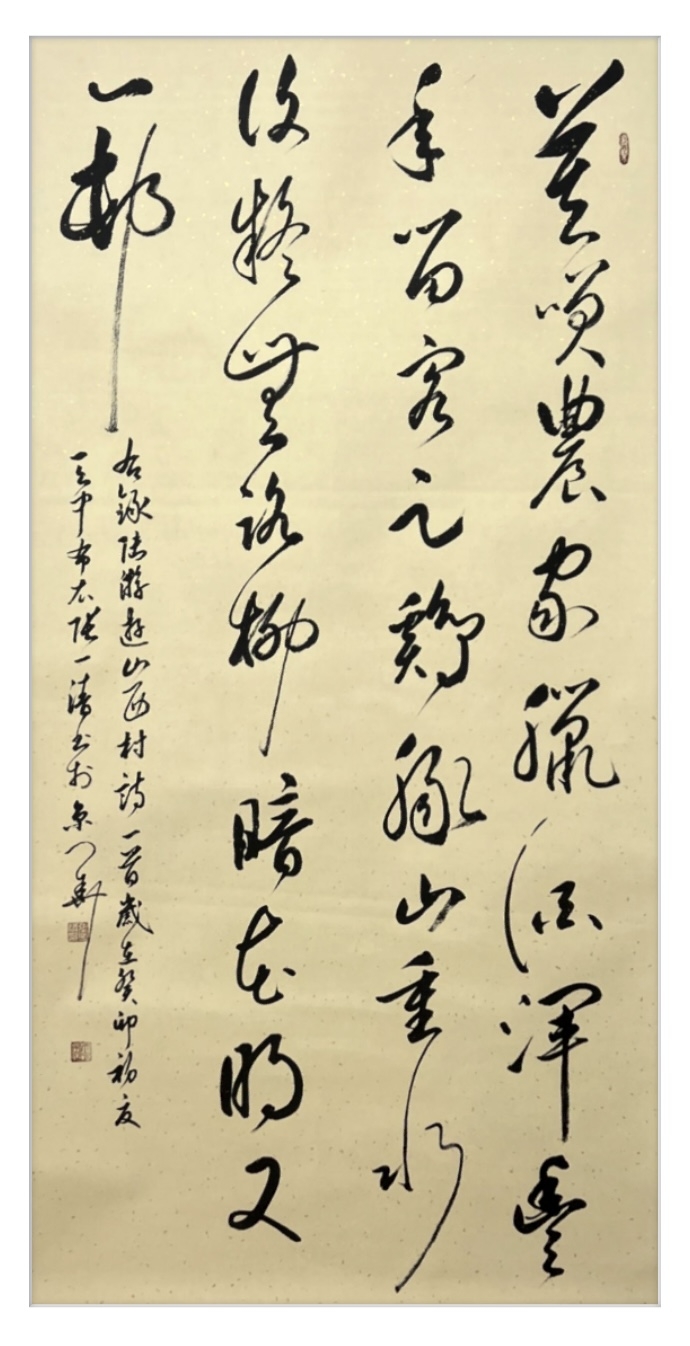 莫咲農家臘酒渾豐
年留客足鷄豚山重水
復疑無路柳暗花明又
一邨
右錄陸游遊山西村詩一首歲在癸卯初夏
天中布衣一清書於京門